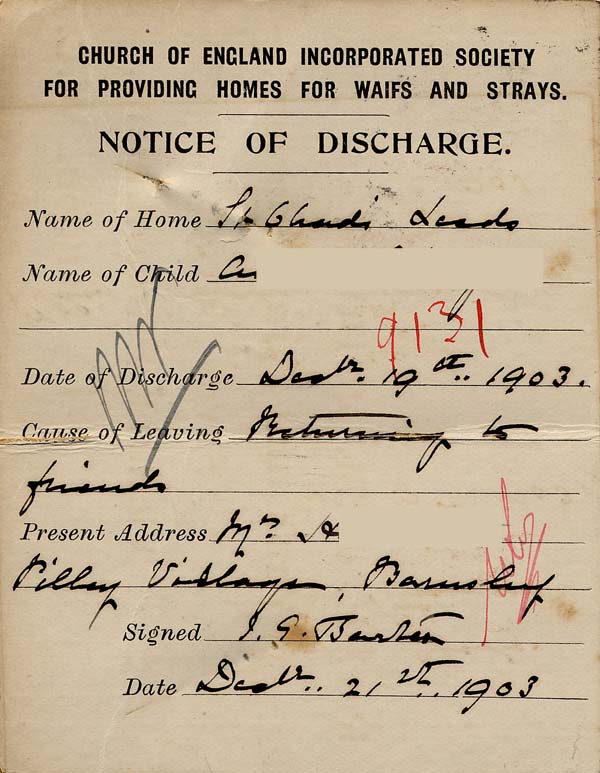 CHURCH OF ENGLAND INCORPORATED SOCIETY
FOR PROVIDING HOMES FOR WAIFS AND STRAYS.
NOTICE OF DISCHARGE.
Name of Home St Chad's Leeds
Name of Child
9131
Date of Discharge Decbr. 19th. 1903.
Cause of Leaving Returning to
friends
Present Address Mrs H
Pilley Village, Barnsley
Signed J. G. Barton
Date Decbr. 21st. 1903